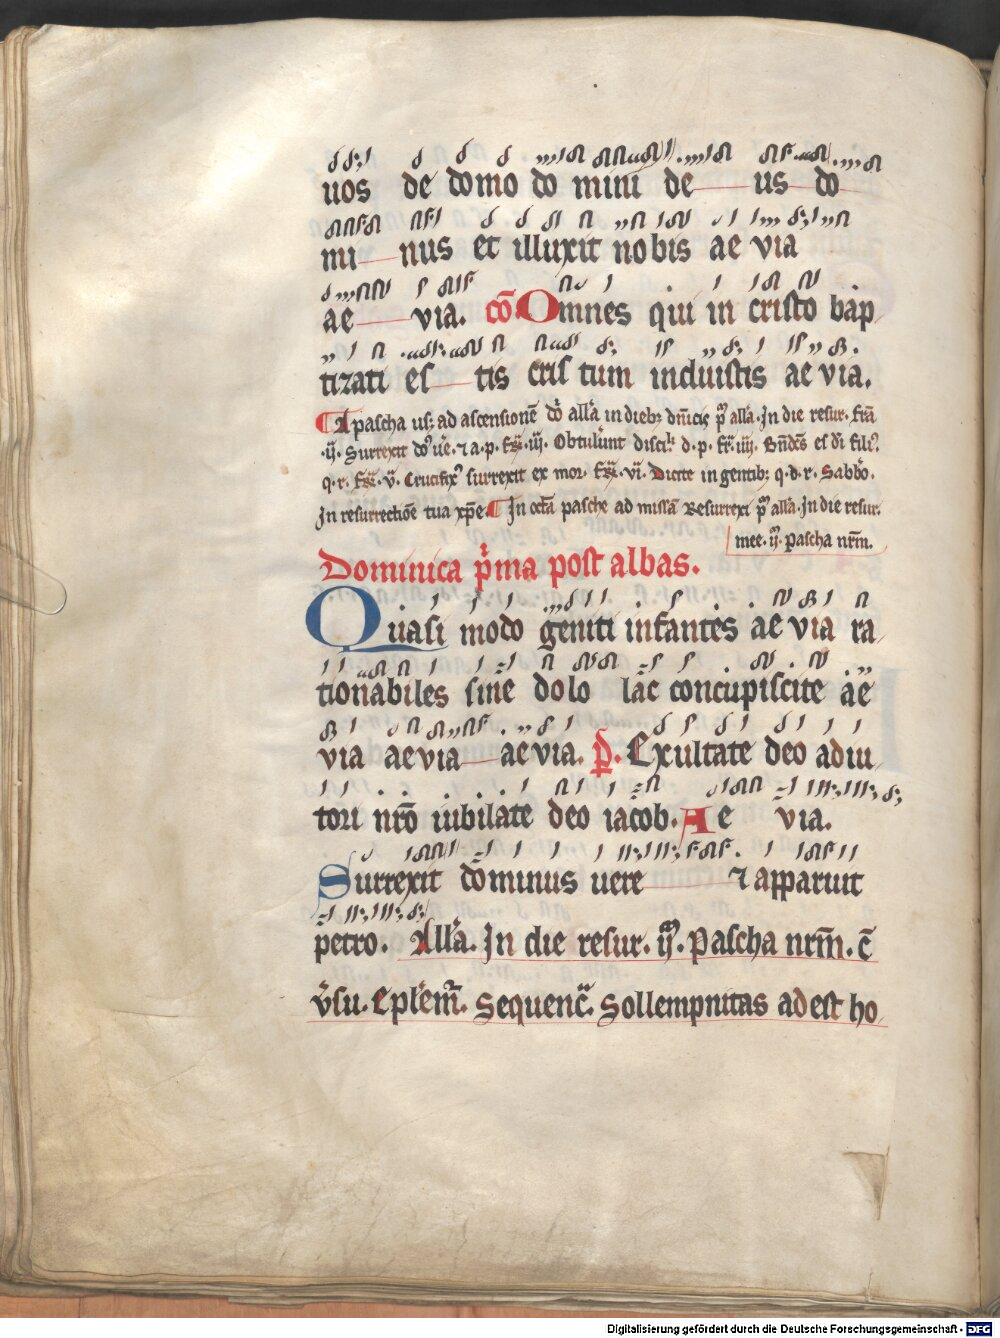 uos de domo do mini de us do
mi nus et illuxit nobis ae via
ae via. cō Omnes qui in cristo bap
tizati es tis cris tum induistis ae via.
A pascha usq; ad ascensionē dō allā in dieb; dn̄icis p allā. In die resur. ffīā
.ij. Surrexit do. ue. ⁊ a. p. iij. Obtulerunt disci. d. p. iiij. Bn̄dc̄s es dī fili.
q. r. v. Crucifix surrexit ex mor. vi. Dicite in gentib; q. d. r. Sabbo.
In resurrectiōe tua xp̄e. In octā pasche ad missā Resurrexi p allā. In die resur.
mee. ij. pascha nrm̄.
Dominica p̄ma post albas.
Quasi modo geniti infantes ae via ra
tionabiles sine dolo lac concupiscite ae
via aevia aevia. p̄. Exultate deo adiu
tori nr̄o iubilate deo iacob. Ae via.
Surrexit dominus uere ⁊ apparuit
petro. Allā. In die resur. ij. Pascha nrm̄. c̄
v̄su. Eplem̄. Sequenc̄. Sollempnitas adest ho
Digitalisierung gefördert durch die Deutsche Forschungsgemeinschaft - DFG